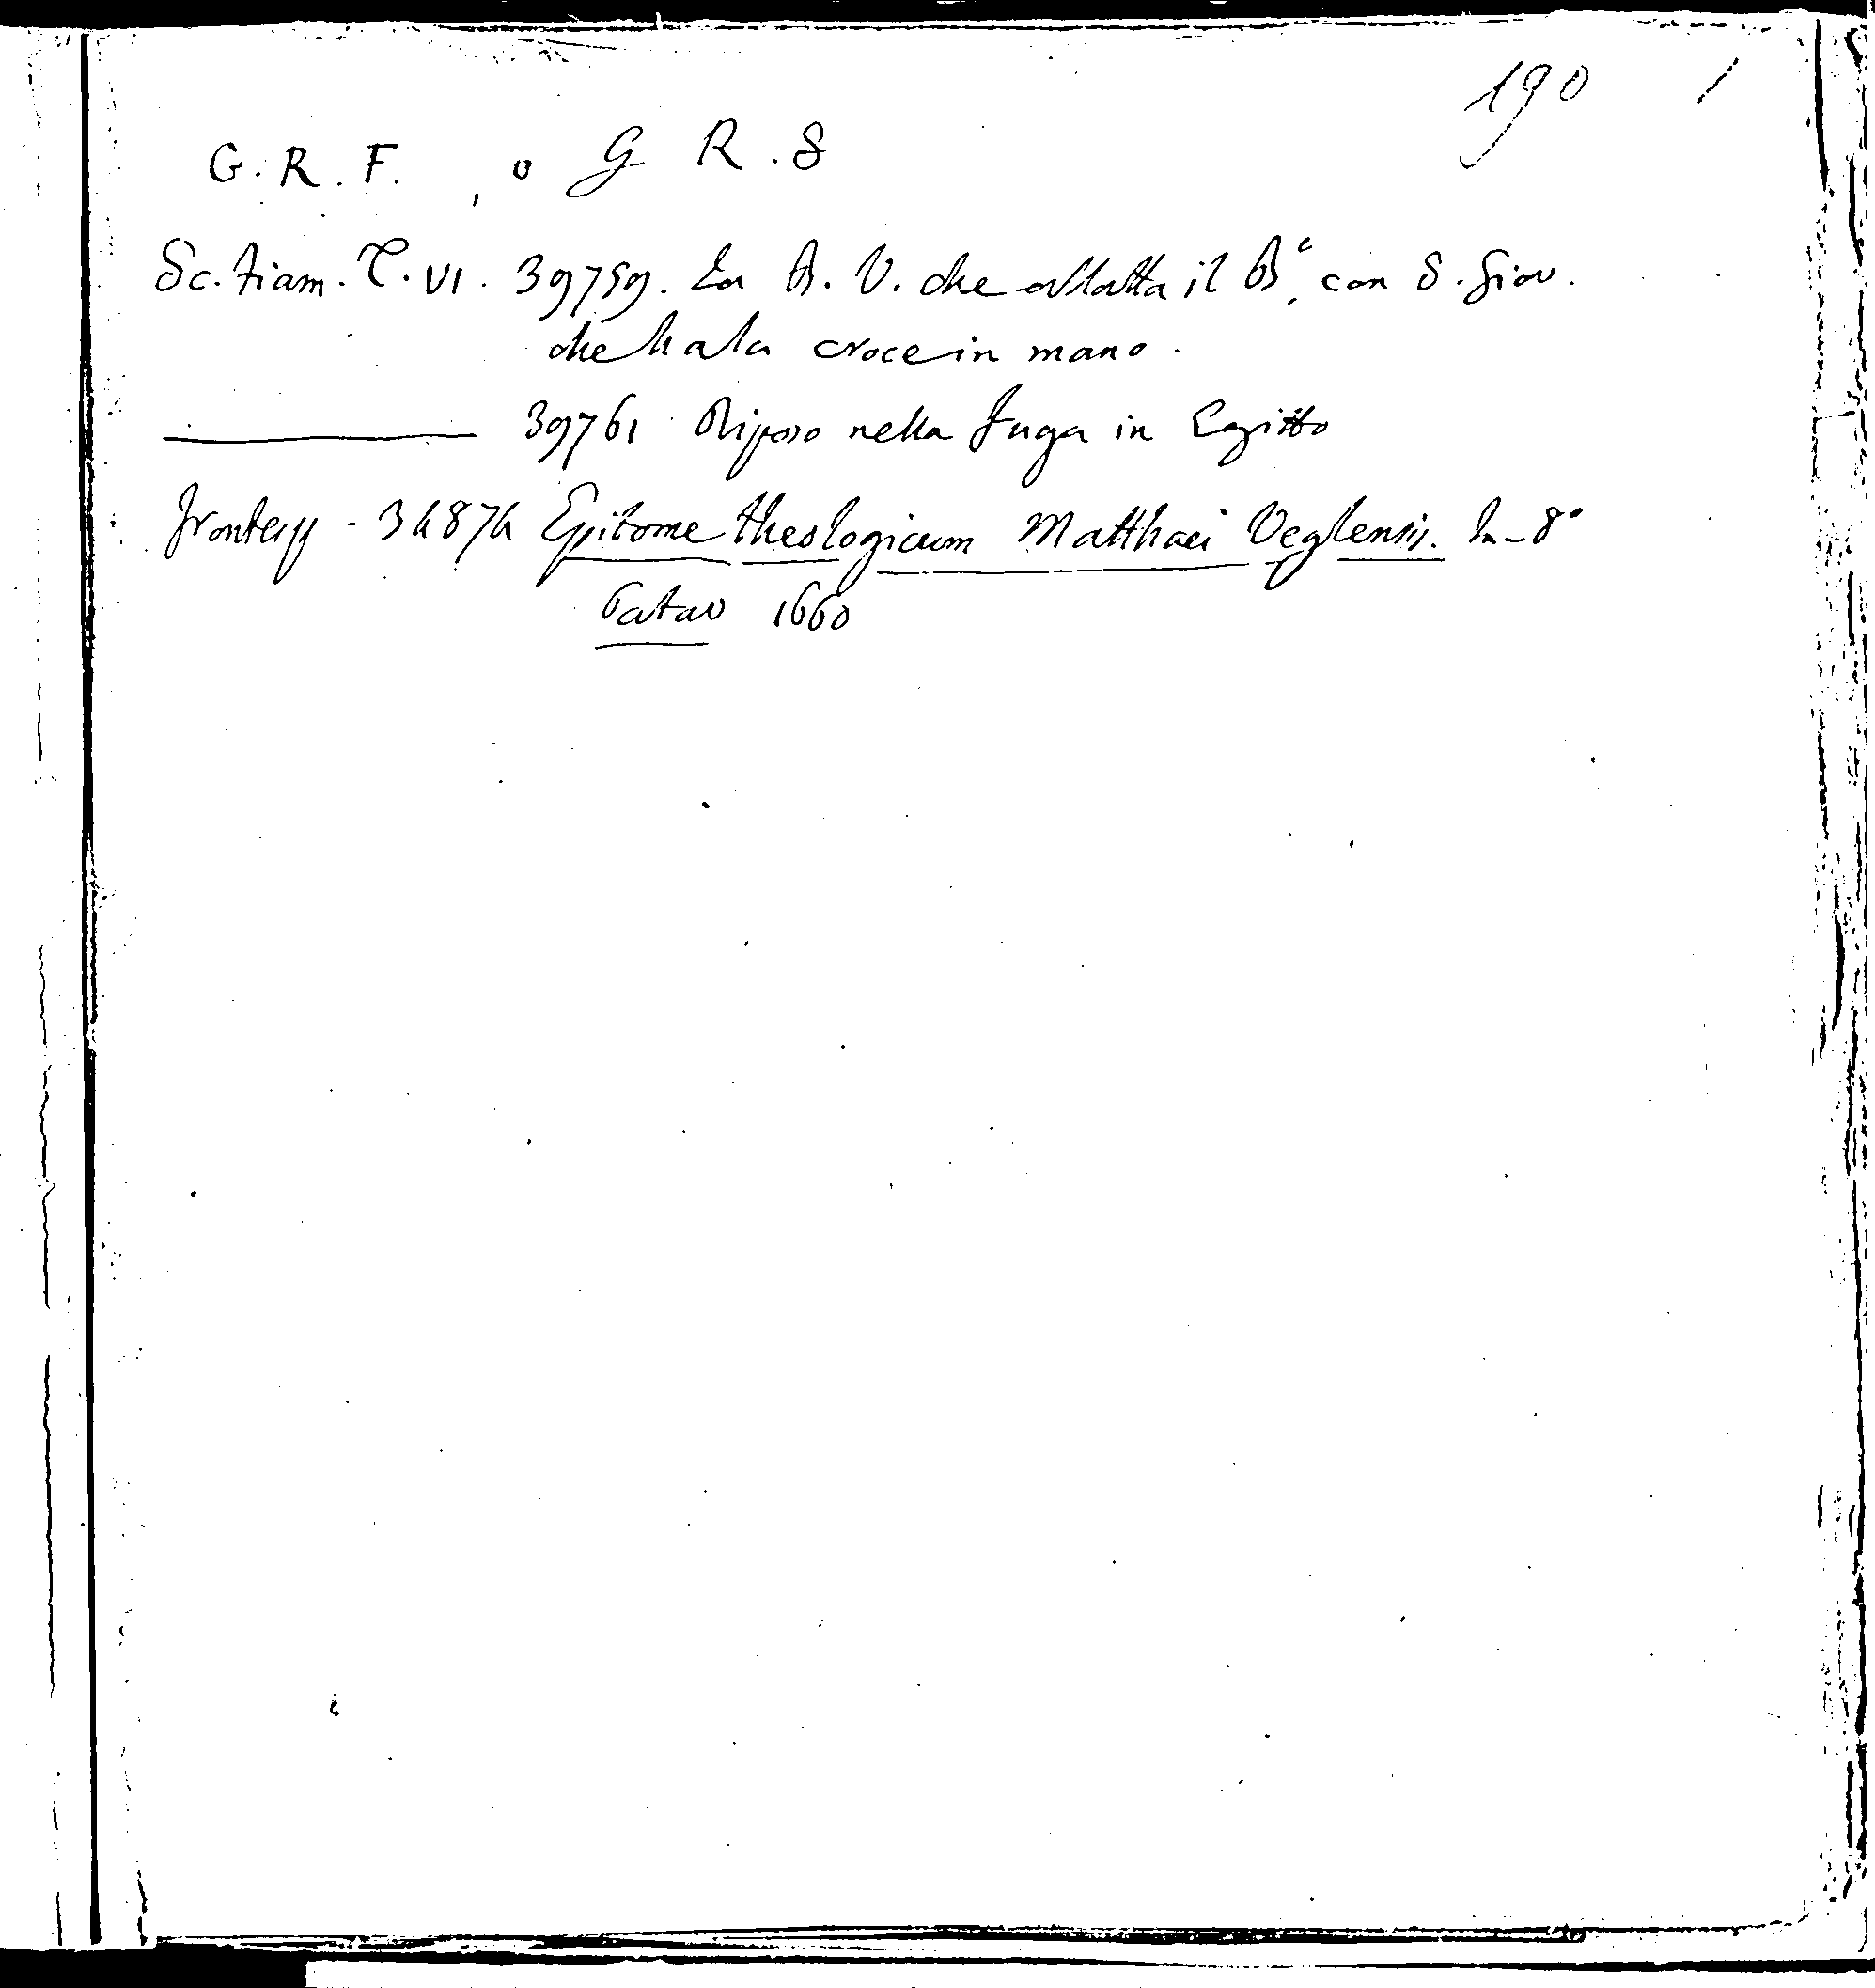 190 1
G. R. F. , o G R. S
Sc. fiam. T. VI. 39759. La B. V. che allatta il B.° con S. Giov.
che ha la croce in mano.
39761 Riposo nella Fuga in Egitto
frontesp - 34874 Epitome theologicum Matthaei Veglensis. In-8°
Patav 1660